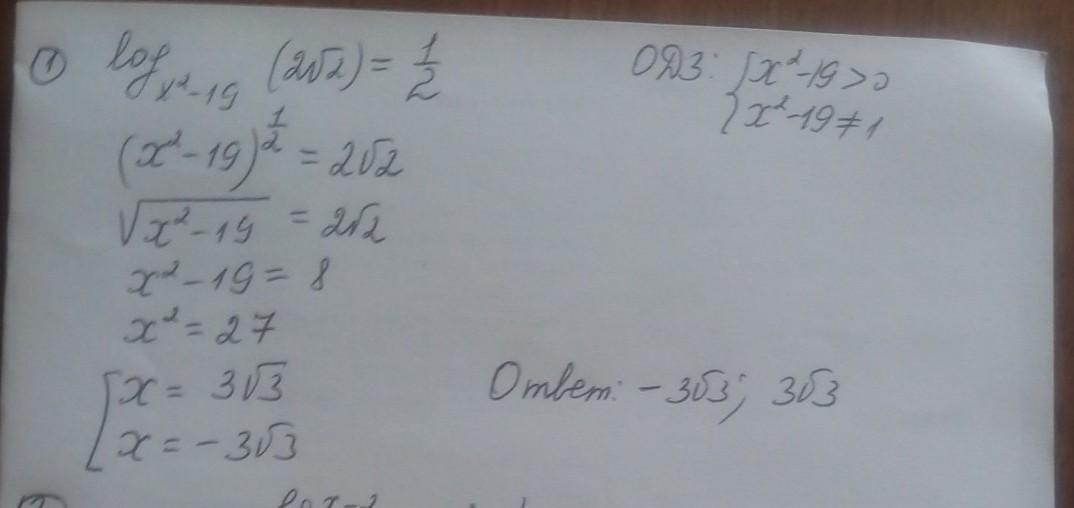 ① log_{x²-19} (2√2) = 1/2
ОДЗ: { x²-19>0
x²-19≠1
(x²-19)^{1/2} = 2√2
√(x²-19) = 2√2
x²-19 = 8
x² = 27
[ x = 3√3
x = -3√3
Ответ: -3√3; 3√3